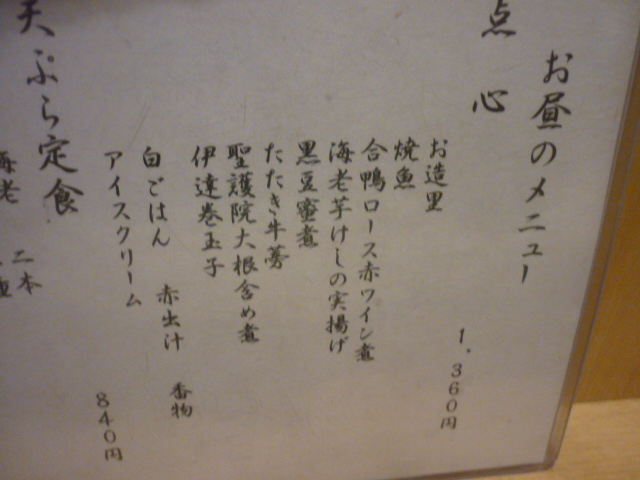 お昼のメニュー
点心
1,360円
お造里
焼魚
合鴨ロース赤ワイン煮
海老芋けしの実揚げ
黒豆蜜煮
たたき牛蒡
聖護院大根含め煮
伊達巻玉子
白ごはん 赤出汁 香物
アイスクリーム
天ぷら定食
840円
海老 二本